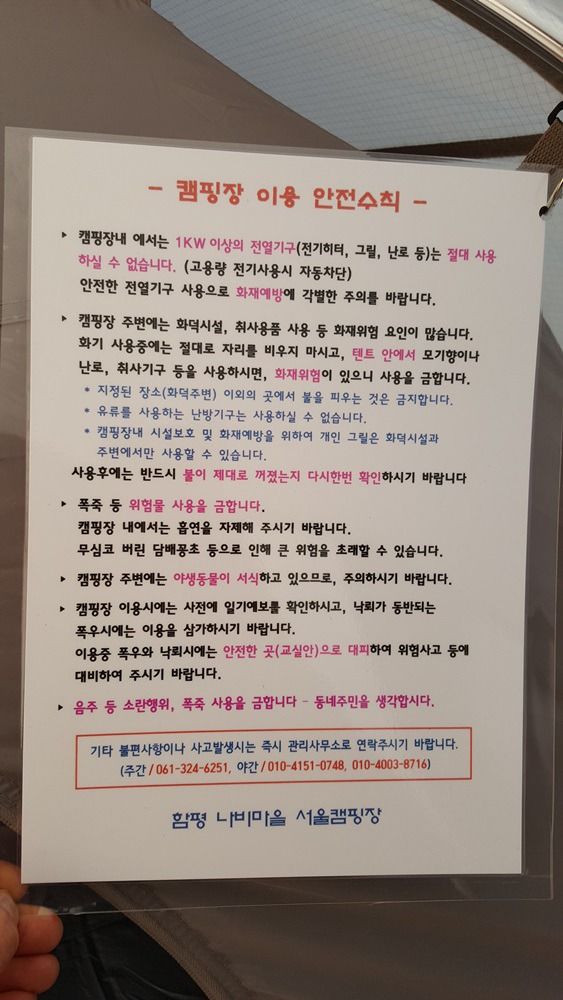 - 캠핑장 이용 안전수칙 -
▸ 캠핑장내 에서는 1KW 이상의 전열기구(전기히터, 그릴, 난로 등)는 절대 사용
하실 수 없습니다. (고용량 전기사용시 자동차단)
안전한 전열기구 사용으로 화재예방에 각별한 주의를 바랍니다.
▸ 캠핑장 주변에는 화덕시설, 취사용품 사용 등 화재위험 요인이 많습니다.
화기 사용중에는 절대로 자리를 비우지 마시고, 텐트 안에서 모기향이나
난로, 취사기구 등을 사용하시면, 화재위험이 있으니 사용을 금합니다.
* 지정된 장소(화덕주변) 이외의 곳에서 불을 피우는 것은 금지합니다.
* 유류를 사용하는 난방기구는 사용하실 수 없습니다.
* 캠핑장내 시설보호 및 화재예방을 위하여 개인 그릴은 화덕시설과
주변에서만 사용할 수 있습니다.
사용후에는 반드시 불이 제대로 꺼졌는지 다시한번 확인하시기 바랍니다
▸ 폭죽 등 위험물 사용을 금합니다.
캠핑장 내에서는 흡연을 자제해 주시기 바랍니다.
무심코 버린 담배꽁초 등으로 인해 큰 위험을 초래할 수 있습니다.
▸ 캠핑장 주변에는 야생동물이 서식하고 있으므로, 주의하시기 바랍니다.
▸ 캠핑장 이용시에는 사전에 일기예보를 확인하시고, 낙뢰가 동반되는
폭우시에는 이용을 삼가하시기 바랍니다.
이용중 폭우와 낙뢰시에는 안전한 곳(교실안)으로 대피하여 위험사고 등에
대비하여 주시기 바랍니다.
▸ 음주 등 소란행위, 폭죽 사용을 금합니다 - 동네주민을 생각합시다.
기타 불편사항이나 사고발생시는 즉시 관리사무소로 연락주시기 바랍니다.
(주간 / 061-324-6251, 야간 / 010-4151-0748, 010-4003-8716)
함평 나비마을 서울캠핑장